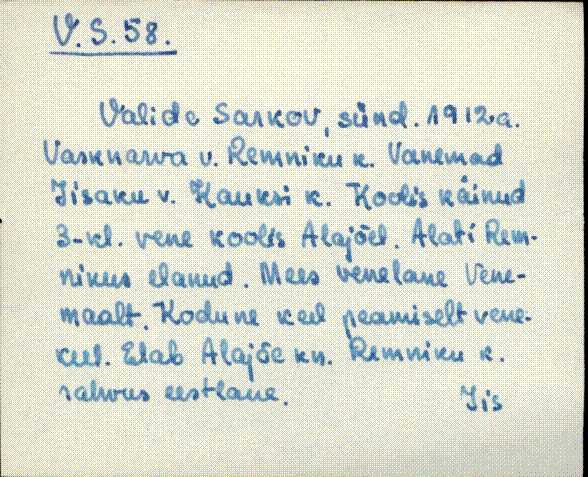 V.S.58.
Valide Sarkov, sünd. 1912.a.
Vasknarva v. Remniku k. Vanemad
Iisaku v. Kauksi k. Koolis käinud
3-kl. vene koolis Alajõel. Alati Rem-
nikus elanud. Mees venelane Vene-
maalt. Kodune keel peamiselt vene-
keel. Elab Alajõe kn. Remniku k.
rahvus eestlane. Iis